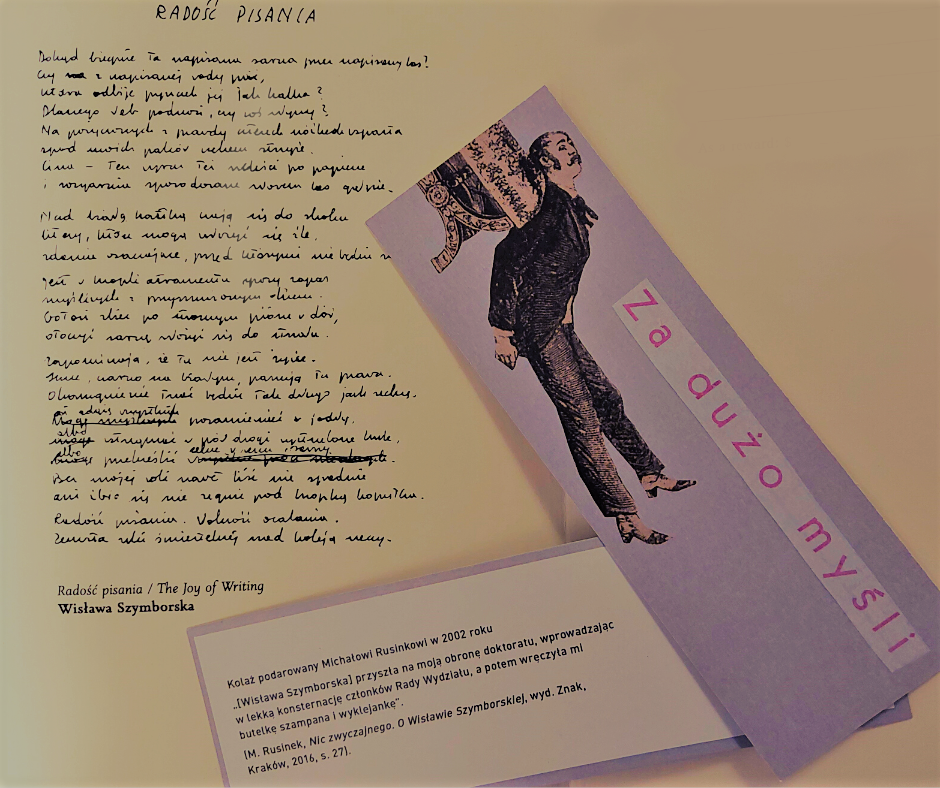 RADOŚĆ PISANIA
Dokąd biegnie ta napisana sarna przez napisany las?
Czy z napisanej wody pić,
która odbije pyszczek jej jak kalka?
Dlaczego łeb podnosi, czy coś słyszy?
Na pożyczonych z prawdy czterech nóżkach wsparta
spod moich palców uchem strzyże.
Cisza – ten wyraz też szeleści po papierze
i rozgarnia spowodowane słowem las gałęzie.
Nad białą kartką czają się do skoku
litery, które mogą ułożyć się źle,
zdania osaczające, przed którymi nie będzie
Jest w kropli atramentu spory zapas
myśliwych z przymrużonym okiem.
Gotowi zbiec po stromym piórze w dół,
otoczyć sarnę, złożyć się do strzału.
Zapominają, że tu nie jest życie.
Inne, czarno na białym, panują tu prawa.
Okamgnienie trwać będzie tak długo jak zechcę.
pozamieniać w
albo wstrzymać w pół drogi wystrzelone kule,
albo
Bez mojej woli nawet liść nie spadnie
ani źdźbło się nie zegnie pod kropką kopytka.
Radość pisania. Wolność ocalania.
Zemsta ręki śmiertelnej nad koleją rzeczy.
Radość pisania / The Joy of Writing
Wisława Szymborska
Za dużo myśli
Kolaż podarowany Michałowi Rusinkowi w 2002 roku
„[Wisława Szymborska] przyszła na moją obronę doktoratu, wprowadzając
w lekką konsternację członków Rady Wydziału, a potem wręczyła mi
butelkę szampana i wyklejankę”.
(M. Rusinek, Nic zwyczajnego. O Wisławie Szymborskiej, wyd. Znak,
Kraków, 2016, s. 27).